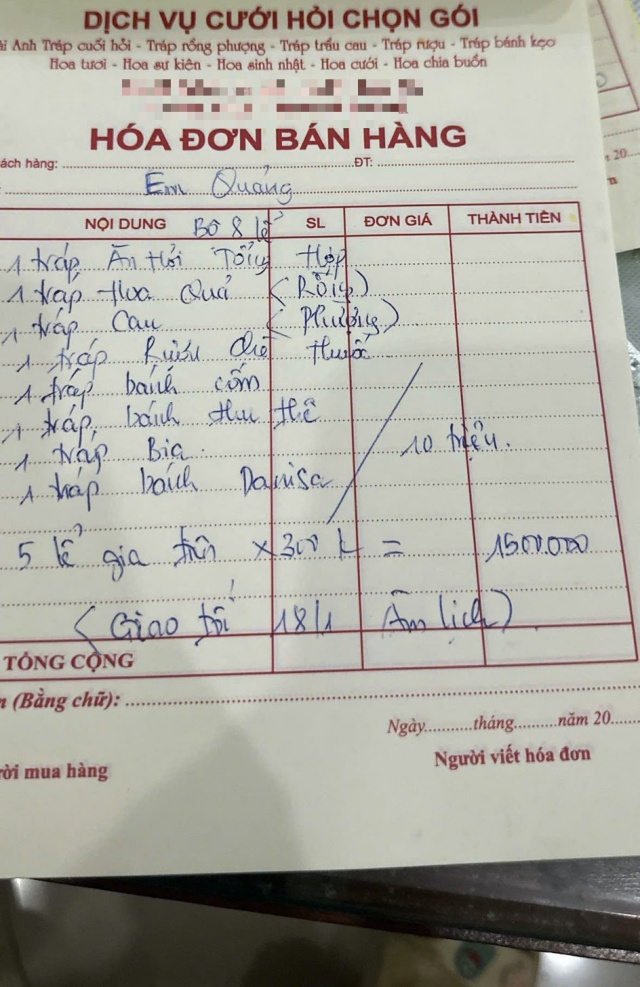 DỊCH VỤ CƯỚI HỎI CHỌN GÓI
Anh Tráp cưới hỏi - Tráp rồng phượng - Tráp trầu cau - Tráp rượu - Tráp bánh kẹo
Hoa tươi - Hoa sự kiện - Hoa sinh nhật - Hoa cưới - Hoa chia buồn
HÓA ĐƠN BÁN HÀNG
ách hàng: ĐT:
Em Quảng
NỘI DUNG Bộ 8 lễ SL ĐƠN GIÁ THÀNH TIỀN
1 tráp Ăn Hỏi Tổng Hợp
1 tráp Hoa Quả (Rồng)
1 tráp Cau (Phượng)
1 tráp Rượu chè thuốc
1 tráp bánh cốm
1 tráp bánh thu thê
1 tráp Bia
10 triệu.
1 tráp bánh Danisa
5 lễ gia tiên × 300 k = 1500.000
(Giao tối 18/1 Âm lịch)
TỔNG CỘNG
(Bằng chữ):
Ngày tháng năm 20
ời mua hàng Người viết hóa đơn
20